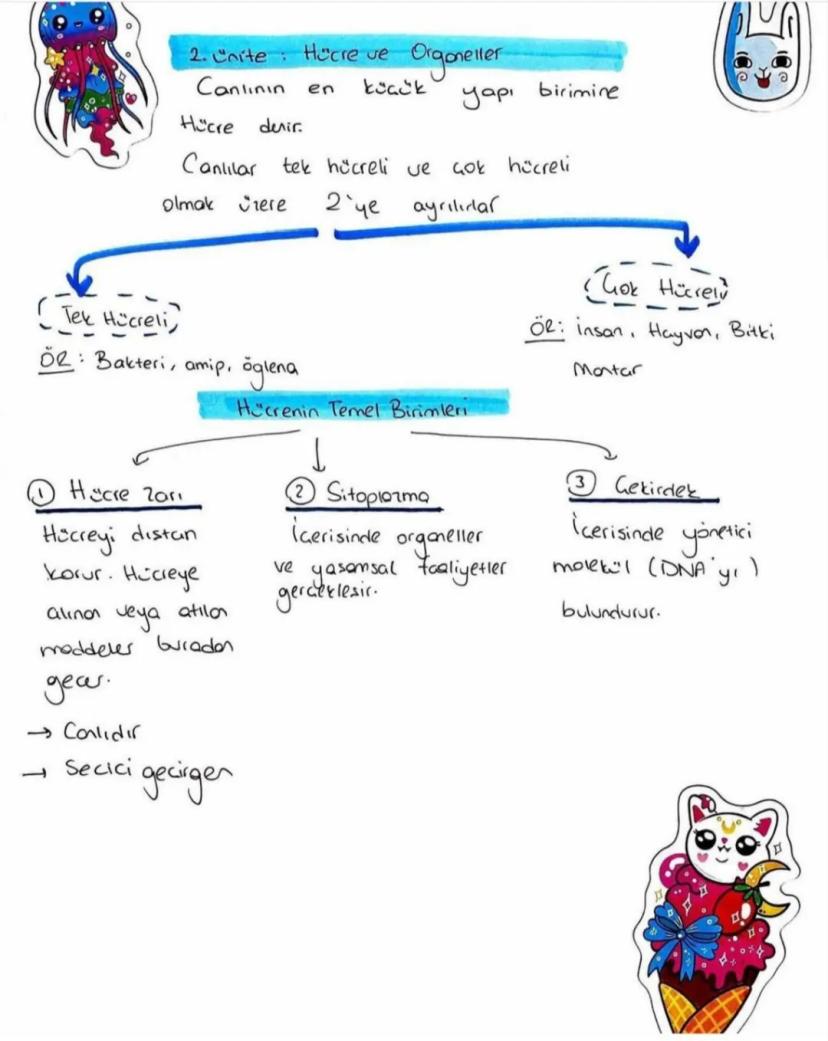 2. Ünite : Hücre ve Organeller
Canlının en küçük yapı birimine
Hücre denir.
Canlılar tek hücreli ve çok hücreli
olmak üzere 2'ye ayrılırlar
Tek Hücreli
ÖR : Bakteri, amip, öglena
Çok Hücreli
ÖR: İnsan, Hayvan, Bitki
Mantar
Hücrenin Temel Birimleri
1 Hücre Zarı
Hücreyi dıştan
korur. Hücreye
alınan veya atılan
maddeler buradan
geçer.
→ Canlıdır
→ Seçici geçirgen
2 Sitoplazma
İçerisinde organeller
ve yaşamsal faaliyetler
gerçekleşir.
3 Çekirdek
İçerisinde yönetici
molekül (DNA'yı)
bulundurur.